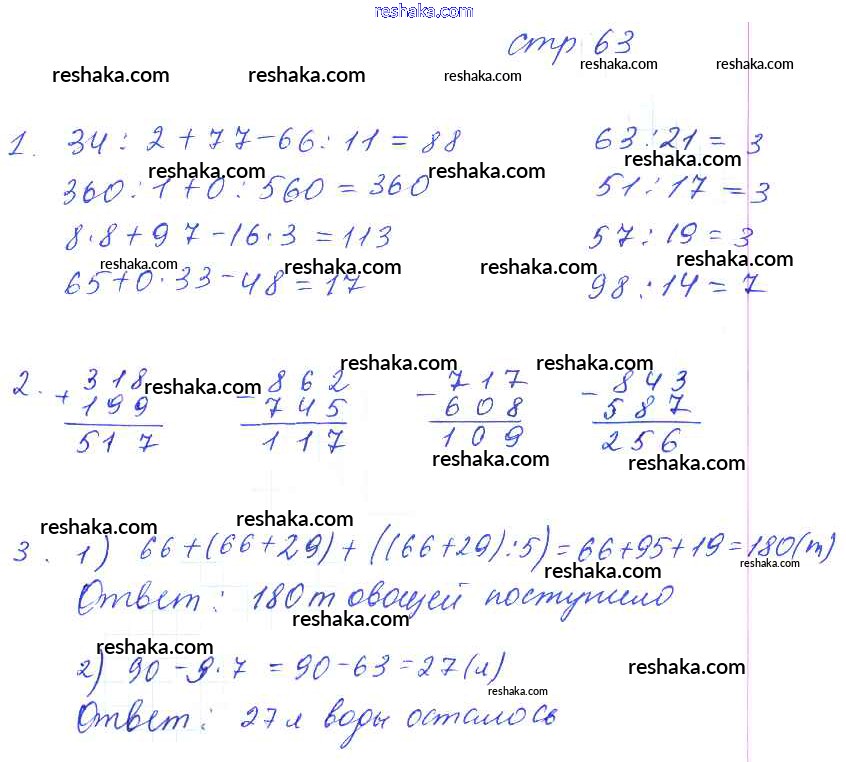 reshaka.com
стр 63
reshaka.com reshaka.com reshaka.com reshaka.com reshaka.com
1. 34 : 2 + 77 - 66 : 11 = 88 63 : 21 = 3
reshaka.com reshaka.com reshaka.com
360 : 1 + 0 : 560 = 360 51 : 17 = 3
8 · 8 + 97 - 16 · 3 = 113 57 : 19 = 3
reshaka.com reshaka.com reshaka.com reshaka.com
65 + 0 · 33 - 48 = 17 98 : 14 = 7
reshaka.com reshaka.com
2. + 318 - 862 - 717 - 843
reshaka.com
199 745 608 587
517 117 109 256
reshaka.com reshaka.com
reshaka.com reshaka.com
3. 1) 66 + (66 + 29) + ((66 + 29) : 5) = 66 + 95 + 19 = 180 (т)
reshaka.com reshaka.com
Ответ : 180 т овощей поступило
reshaka.com reshaka.com
2) 90 - 9 · 7 = 90 - 63 = 27 (л)
reshaka.com reshaka.com
Ответ : 27 л воды осталось